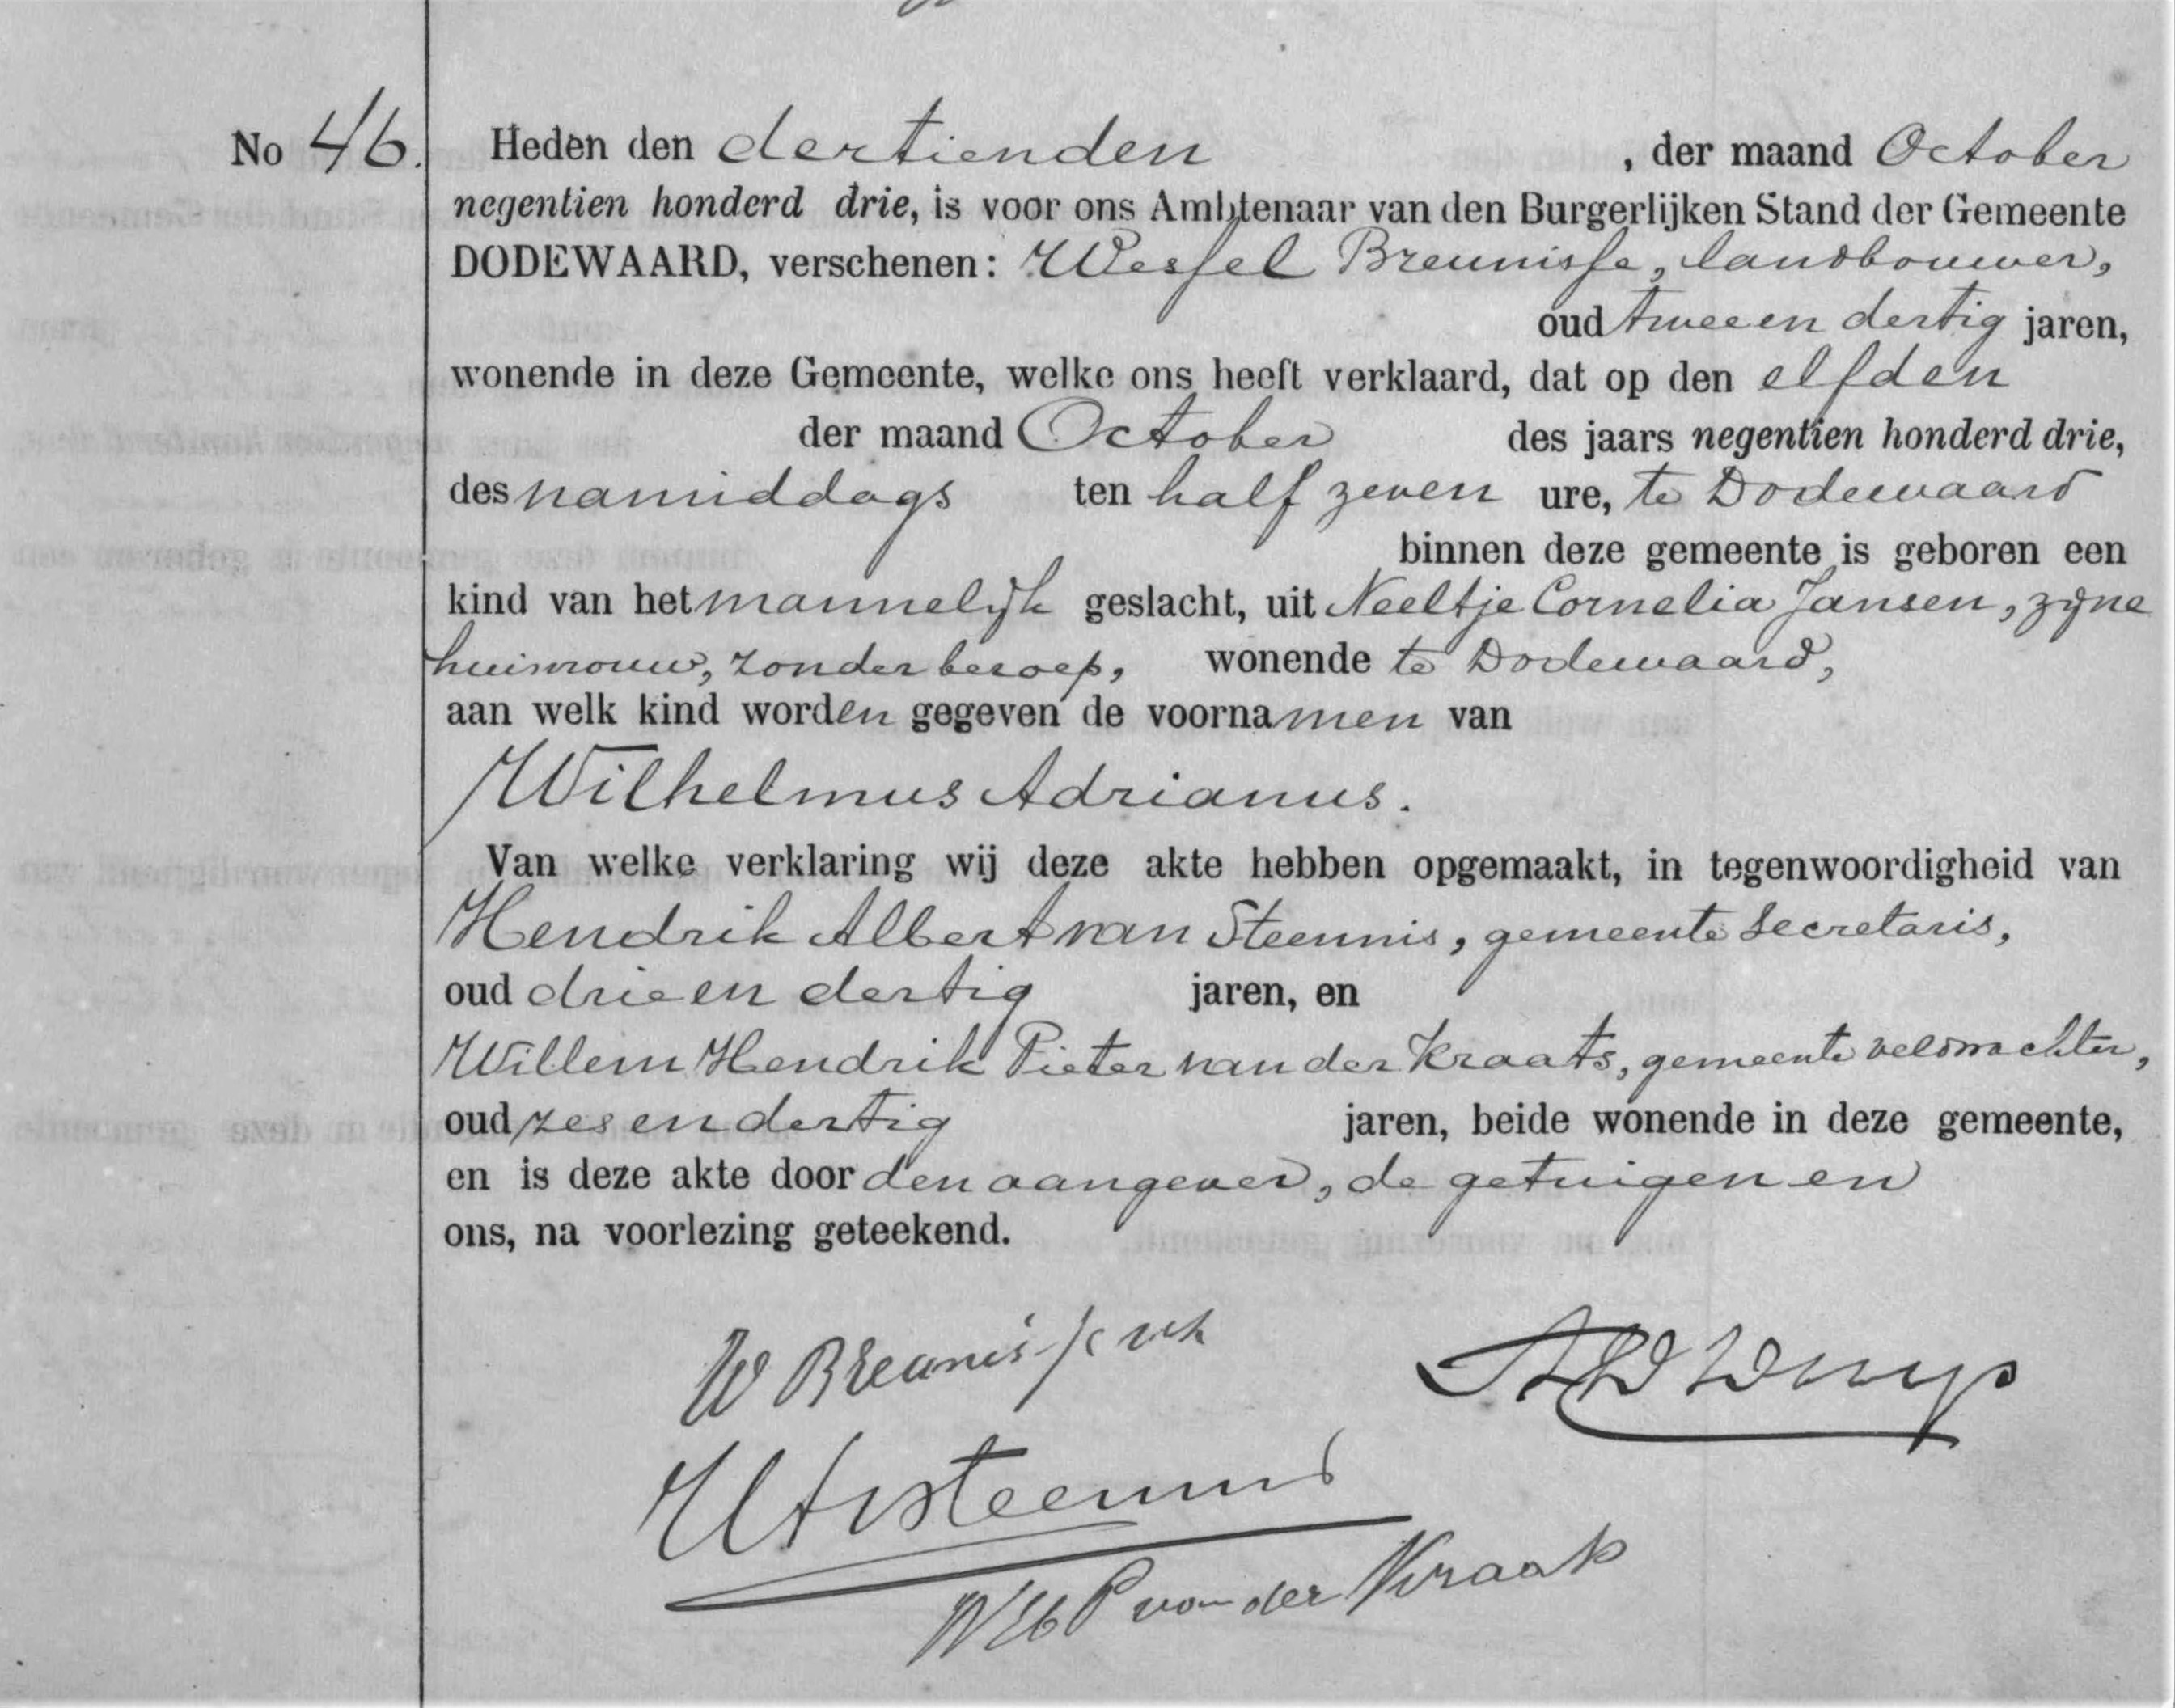 No 46.
Heden den dertienden , der maand October
negentien honderd drie, is voor ons Ambtenaar van den Burgerlijken Stand der Gemeente
DODEWAARD, verschenen: Wessel Breunisse, landbouwer,
oud twee en dertig jaren,
wonende in deze Gemeente, welke ons heeft verklaard, dat op den elfden
der maand October des jaars negentien honderd drie,
des namiddags ten half zeven ure, te Dodewaard
binnen deze gemeente is geboren een
kind van het mannelijk geslacht, uit Neeltje Cornelia Jansen, zijne
huisvrouw, zonder beroep, wonende te Dodewaard,
aan welk kind worden gegeven de voornamen van
Wilhelmus Adrianus.
Van welke verklaring wij deze akte hebben opgemaakt, in tegenwoordigheid van
Hendrik Albert van Steennis, gemeente secretaris,
oud drie en dertig jaren, en
Willem Hendrik Pieter van der Kraats, gemeente veldwachter,
oud zes en dertig jaren, beide wonende in deze gemeente,
en is deze akte door den aangever, de getuigen en
ons, na voorlezing geteekend.
W Breunisse
HAvSteennis
WHP van der Kraats